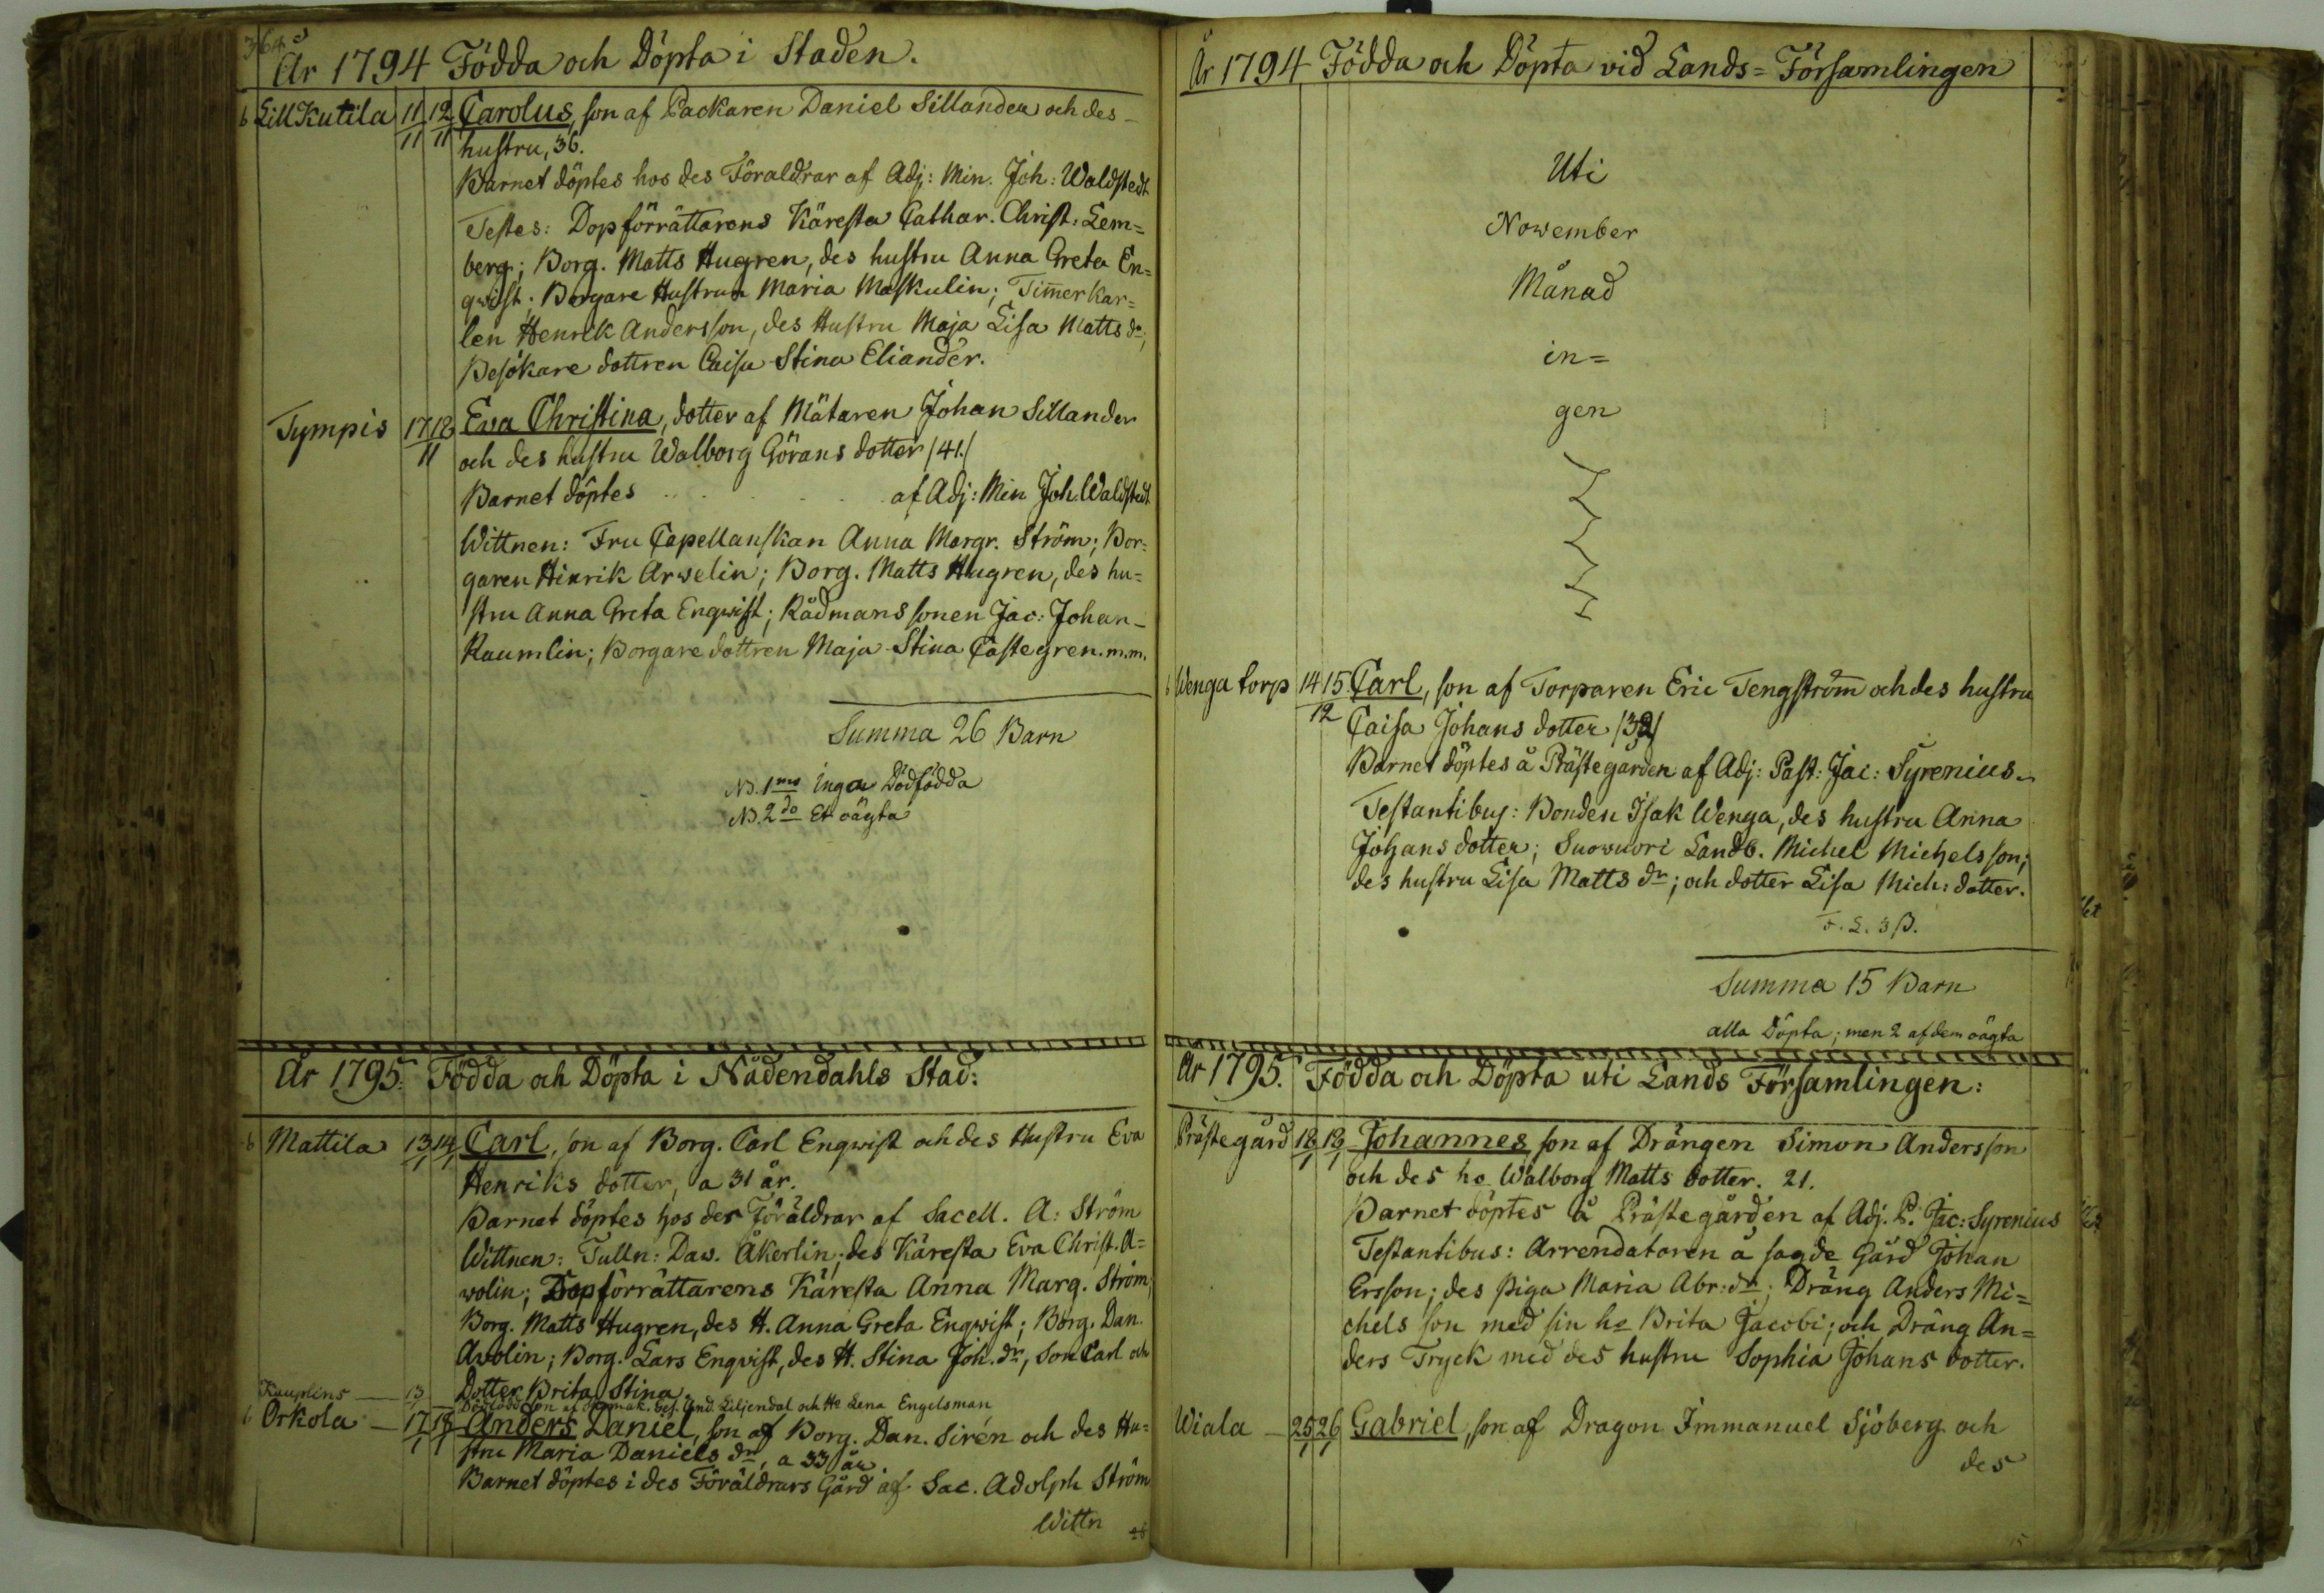 364
År 1794 Födda och Döpta i Staden.
Lill Kutila 11/11 12/11 Carolus, son af Packaren Daniel Sillander och des
hustru, 36.
Barnet döptes hos des Föraldrar af Adj: Min. Joh: Waldstedt
Testes: Dopförrättarens Käresta Cathar. Christ: Lem=
berg; Borg. Matts Hugren, des hustru Anna Greta En=
qwist; Borgare Hustrun Maria Maskulin; Tim̄erkar=
len Henrik Andersson, des Hustru Maja Lisa Matts dr;
Besökare dottren Caisa Stina Eliander.
Tympis 17 18/11 Eva Christina, dotter af Mätaren Johan Sillander
och des hustru Walborg Görans dotter /41./
Barnet döptes . . . . af Adj: Min Joh. Waldstedt
Wittnen: Fru Capellanskan Anna Margr. Ström; Bor=
garen Hinrik Arwelin; Borg. Matts Hugren, des hu=
stru Anna Greta Enqwist; Rådmans sonen Jac: Johan
Raumlin; Borgare dottren Maja Stina Castegren. m.m.
Summa 26 Barn
NB. 1mo Inga Dödfödda
NB. 2do Et oägta
År 1795. Födda och Döpta i Nådendahls Stad:
Mattila 13/1 14/1 Carl, son af Borg. Carl Enqwist och des Hustru Eva
Henriks dotter, a 31 år.
Barnet döptes hos des Föräldrar af Sacell. A: Ström
Wittnen: Tulln: Daw. Åkerlin, des Käresta Eva Christ. A=
wolin; Dopförrättarens Käresta Anna Marg. Ström,
Borg. Matts Hugren, des H. Anna Greta Enqwist; Borg. Dan.
Awolin; Borg. Lars Enqvist, des H. Stina Joh. dr, Son Carl och
Dotter Brita Stina.
Kauplins — 13 — Dödfödd son af Ges. And. Liljendal och He Lena Engelsman
Orkola — 17/1 18/1 Anders Daniel, son af Borg. Dan. Sirén och des Hu=
stru Maria Daniels dr, a 33 år.
Barnet döptes i des Föräldrars Gård af Sac. Adolph Ström
Wittn
År 1794 Födda och Döpta vid Lands=Församlingen
Uti
Nowember
Månad
in=
gen
Wenga torp 14 15/12 Carl, son af Torparen Eric Tengström̄ och des hustru
Caisa Johans dotter /32/
Barnet döptes å Prästegården af Adj: Past: Jac: Syrenius
Testantibus: Bonden Isak Wenga, des hustru Anna
Johans dotter; Suowuori Landb. Michel Michels son;
des hustru Lisa Matts dr; och dotter Lisa Mich: dotter.
Summa 15 Barn
alla Döpta; men 2 af dem oägta
År 1795. Födda och Döpta uti Lands Församlingen:
Prästegård 18/1 19/1 Johannes, son af Drängen Simon Andersson
och des ho Walborg Matts dotter. 21.
Barnet döptes å Prästegården af Adj. P. Jac: Syrenius
Testantibus: Arrendatoren å sagde Gård Johan
Ersson; des piga Maria Abr: dr; Dräng Anders Mi=
chels son med sin ho Brita Jacobi; och Dräng An=
ders Tryck med des hustru Sophia Johans dotter.
Wiala — 25/1 26/1 Gabriel, son af Dragon Immanuel Sjöberg och
des